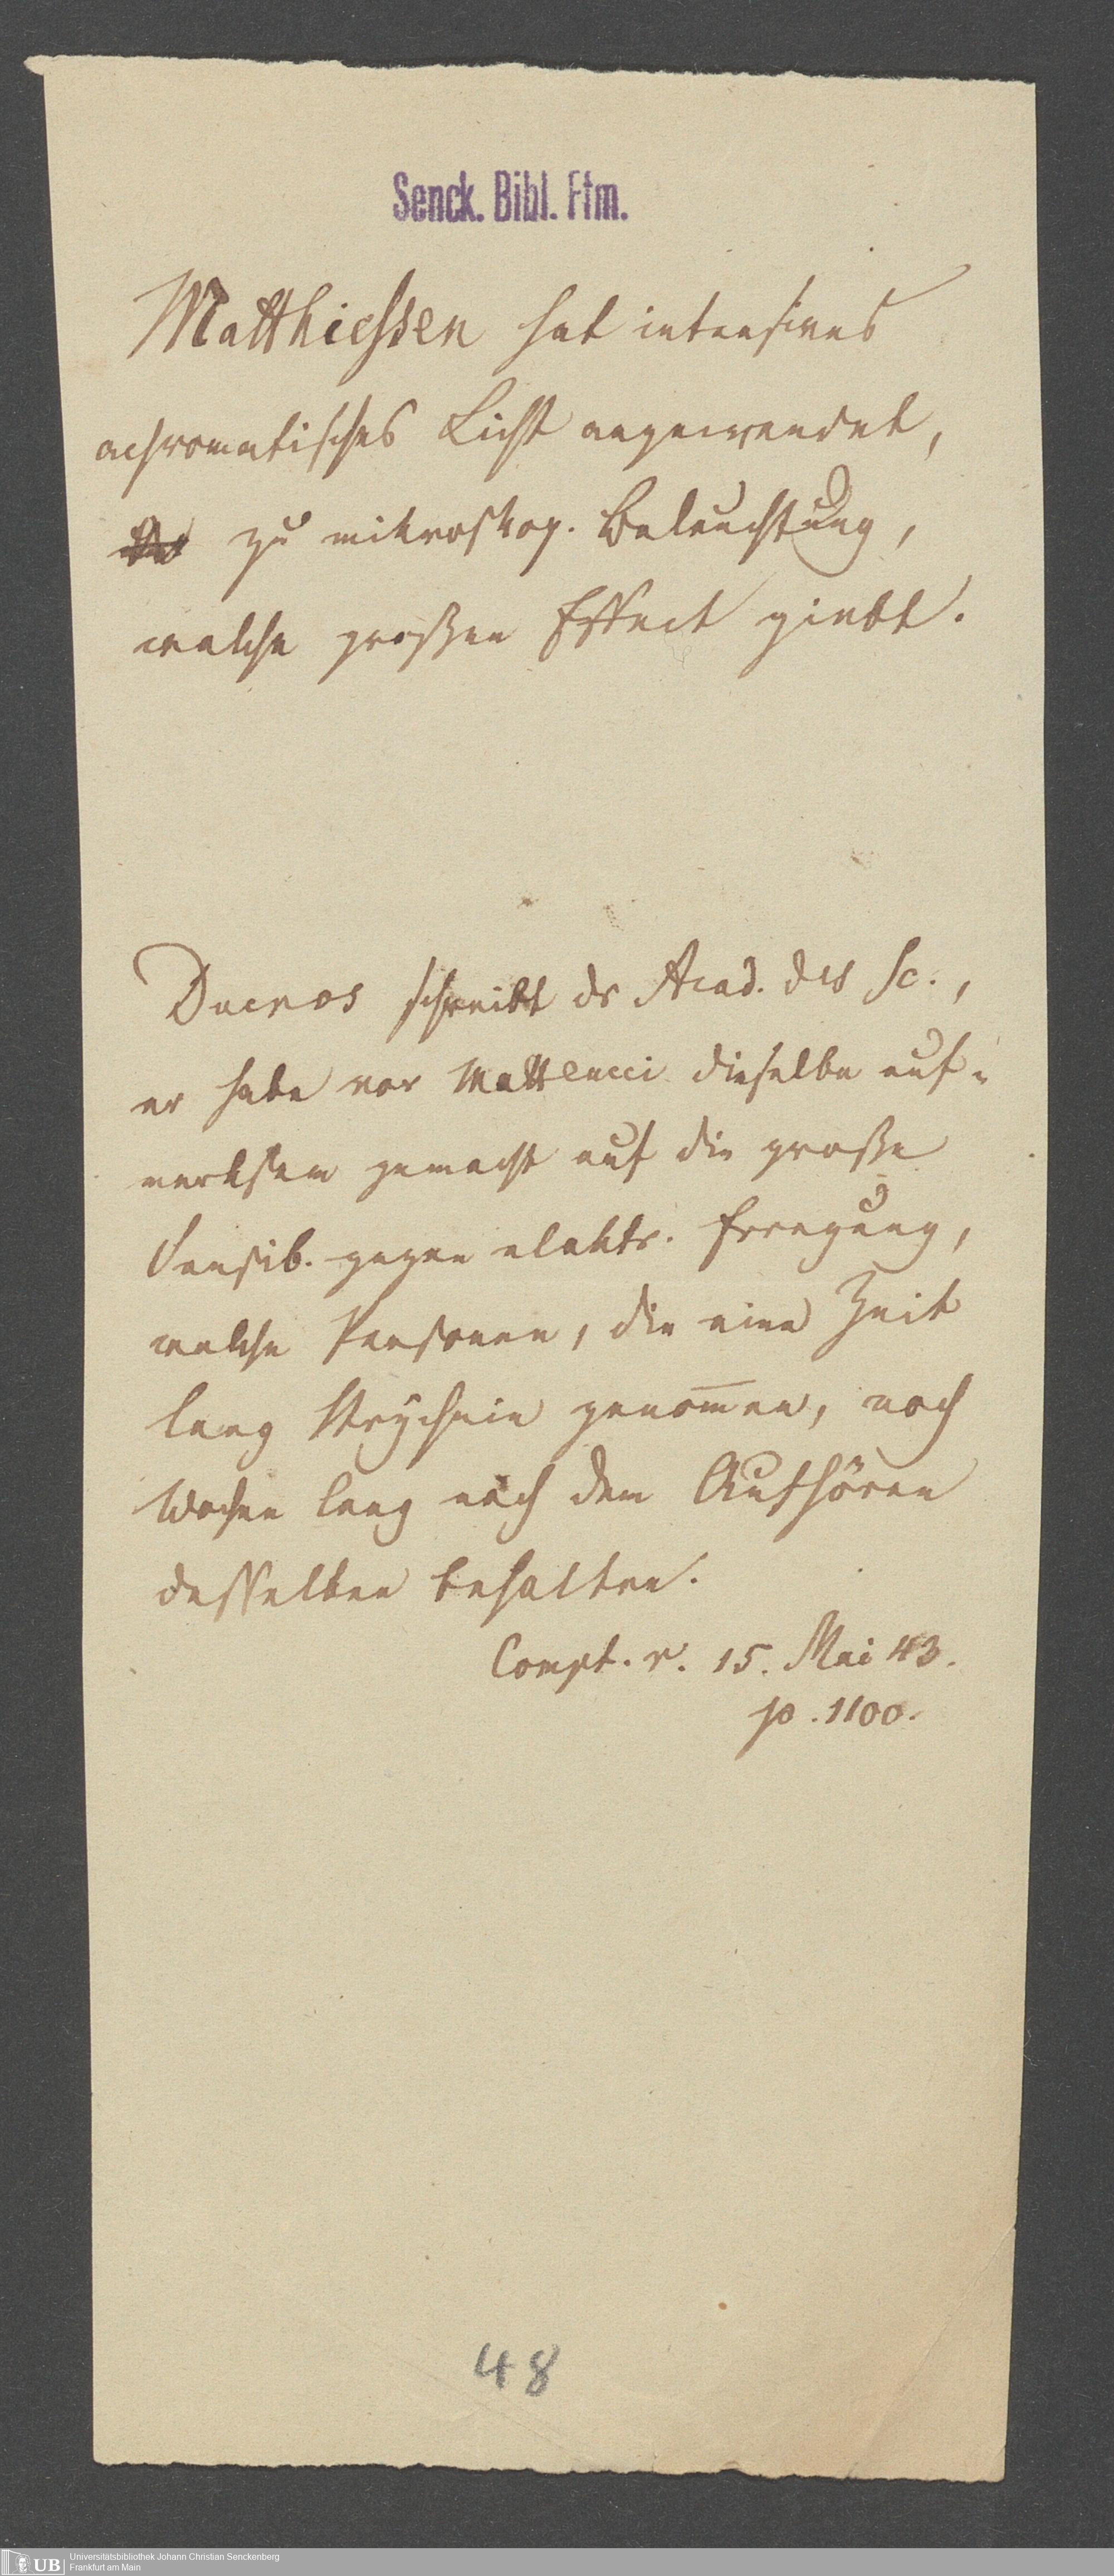 Senck. Bibl. Ffm.
Matthiessen hat intensives
achromatisches Licht angewendet,
zu mikroskop. Beleuchtung,
welche großen Effect giebt.
Ducros schreibt dr Acad. des Sc.,
er habe vor Matteucci dieselbe auf-
merksam gemacht auf die große
Sensib. gegen elektr. Erregung,
welche Personen, die eine Zeit
lang Strychnin genom̅en, noch
Wochen lang nach dem Aufhören
desselben behalten.
Compt. r. 15. Mai 43.
p. 1100.
48
UB
Universitätsbibliothek Johann Christian Senckenberg
Frankfurt am Main